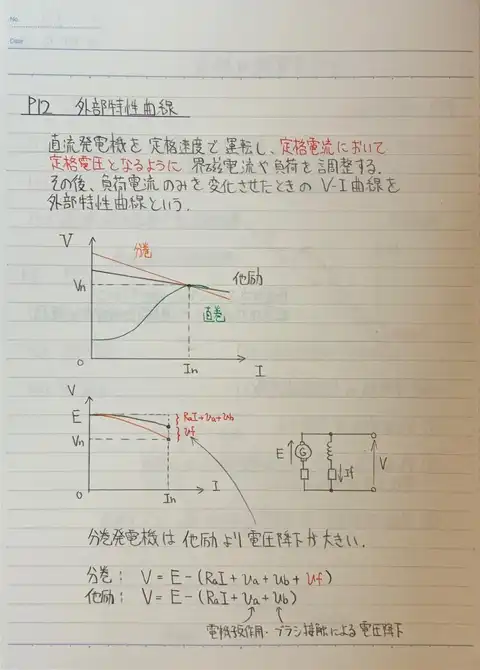 No.
Date
P12 外部特性曲線
直流発電機を定格速度で運転し、定格電流において
定格電圧となるように 界磁電流や負荷を調整する.
その後、負荷電流のみを変化させたときの V-I曲線を
外部特性曲線という.
V
分巻
Vn
他励
直巻
0
In
I
V
E
RaI+va+vb
vf
Vn
0
In
I
E
G
If
V
分巻発電機は他励より電圧降下が大きい.
分巻: V = E - (RaI + va + vb + vf)
他励: V = E - (RaI + va + vb)
電機子反作用・ブラシ接触による電圧降下